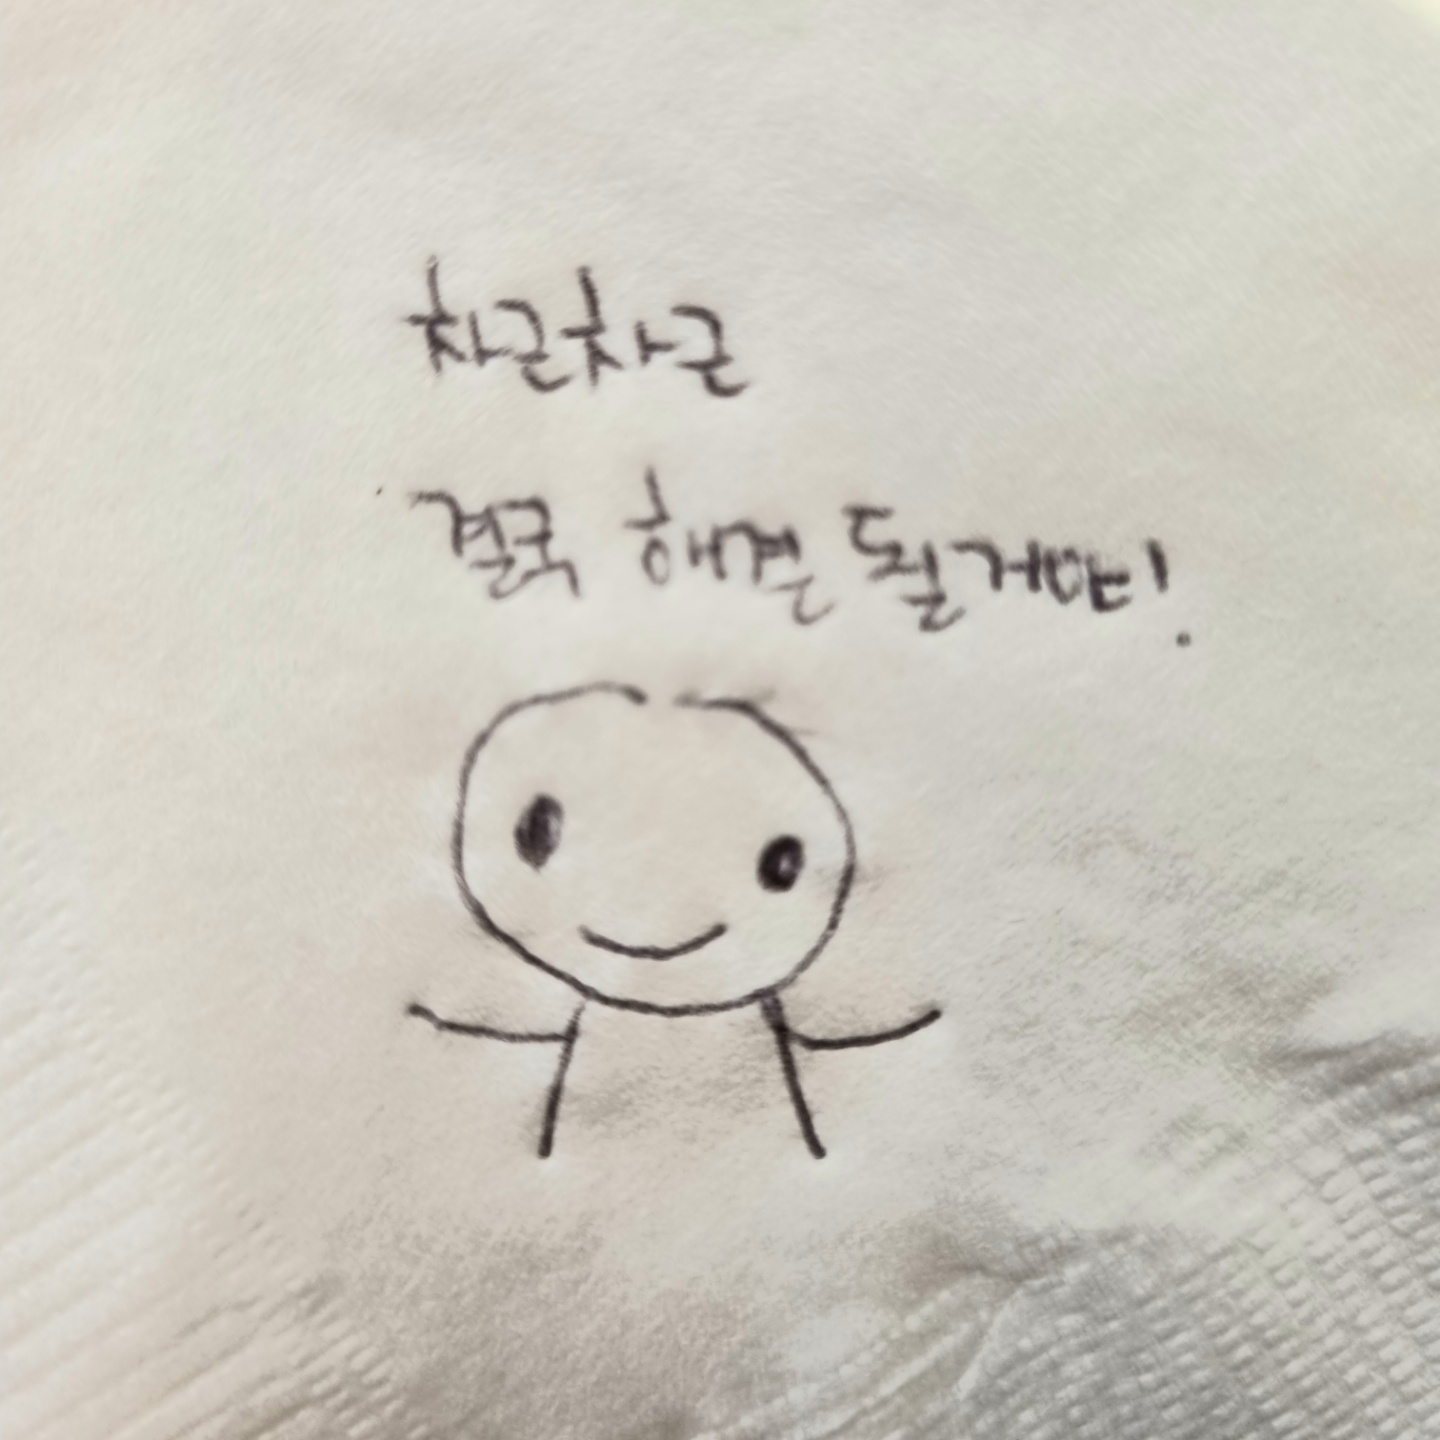 차근차근
결국 해결 될거야!